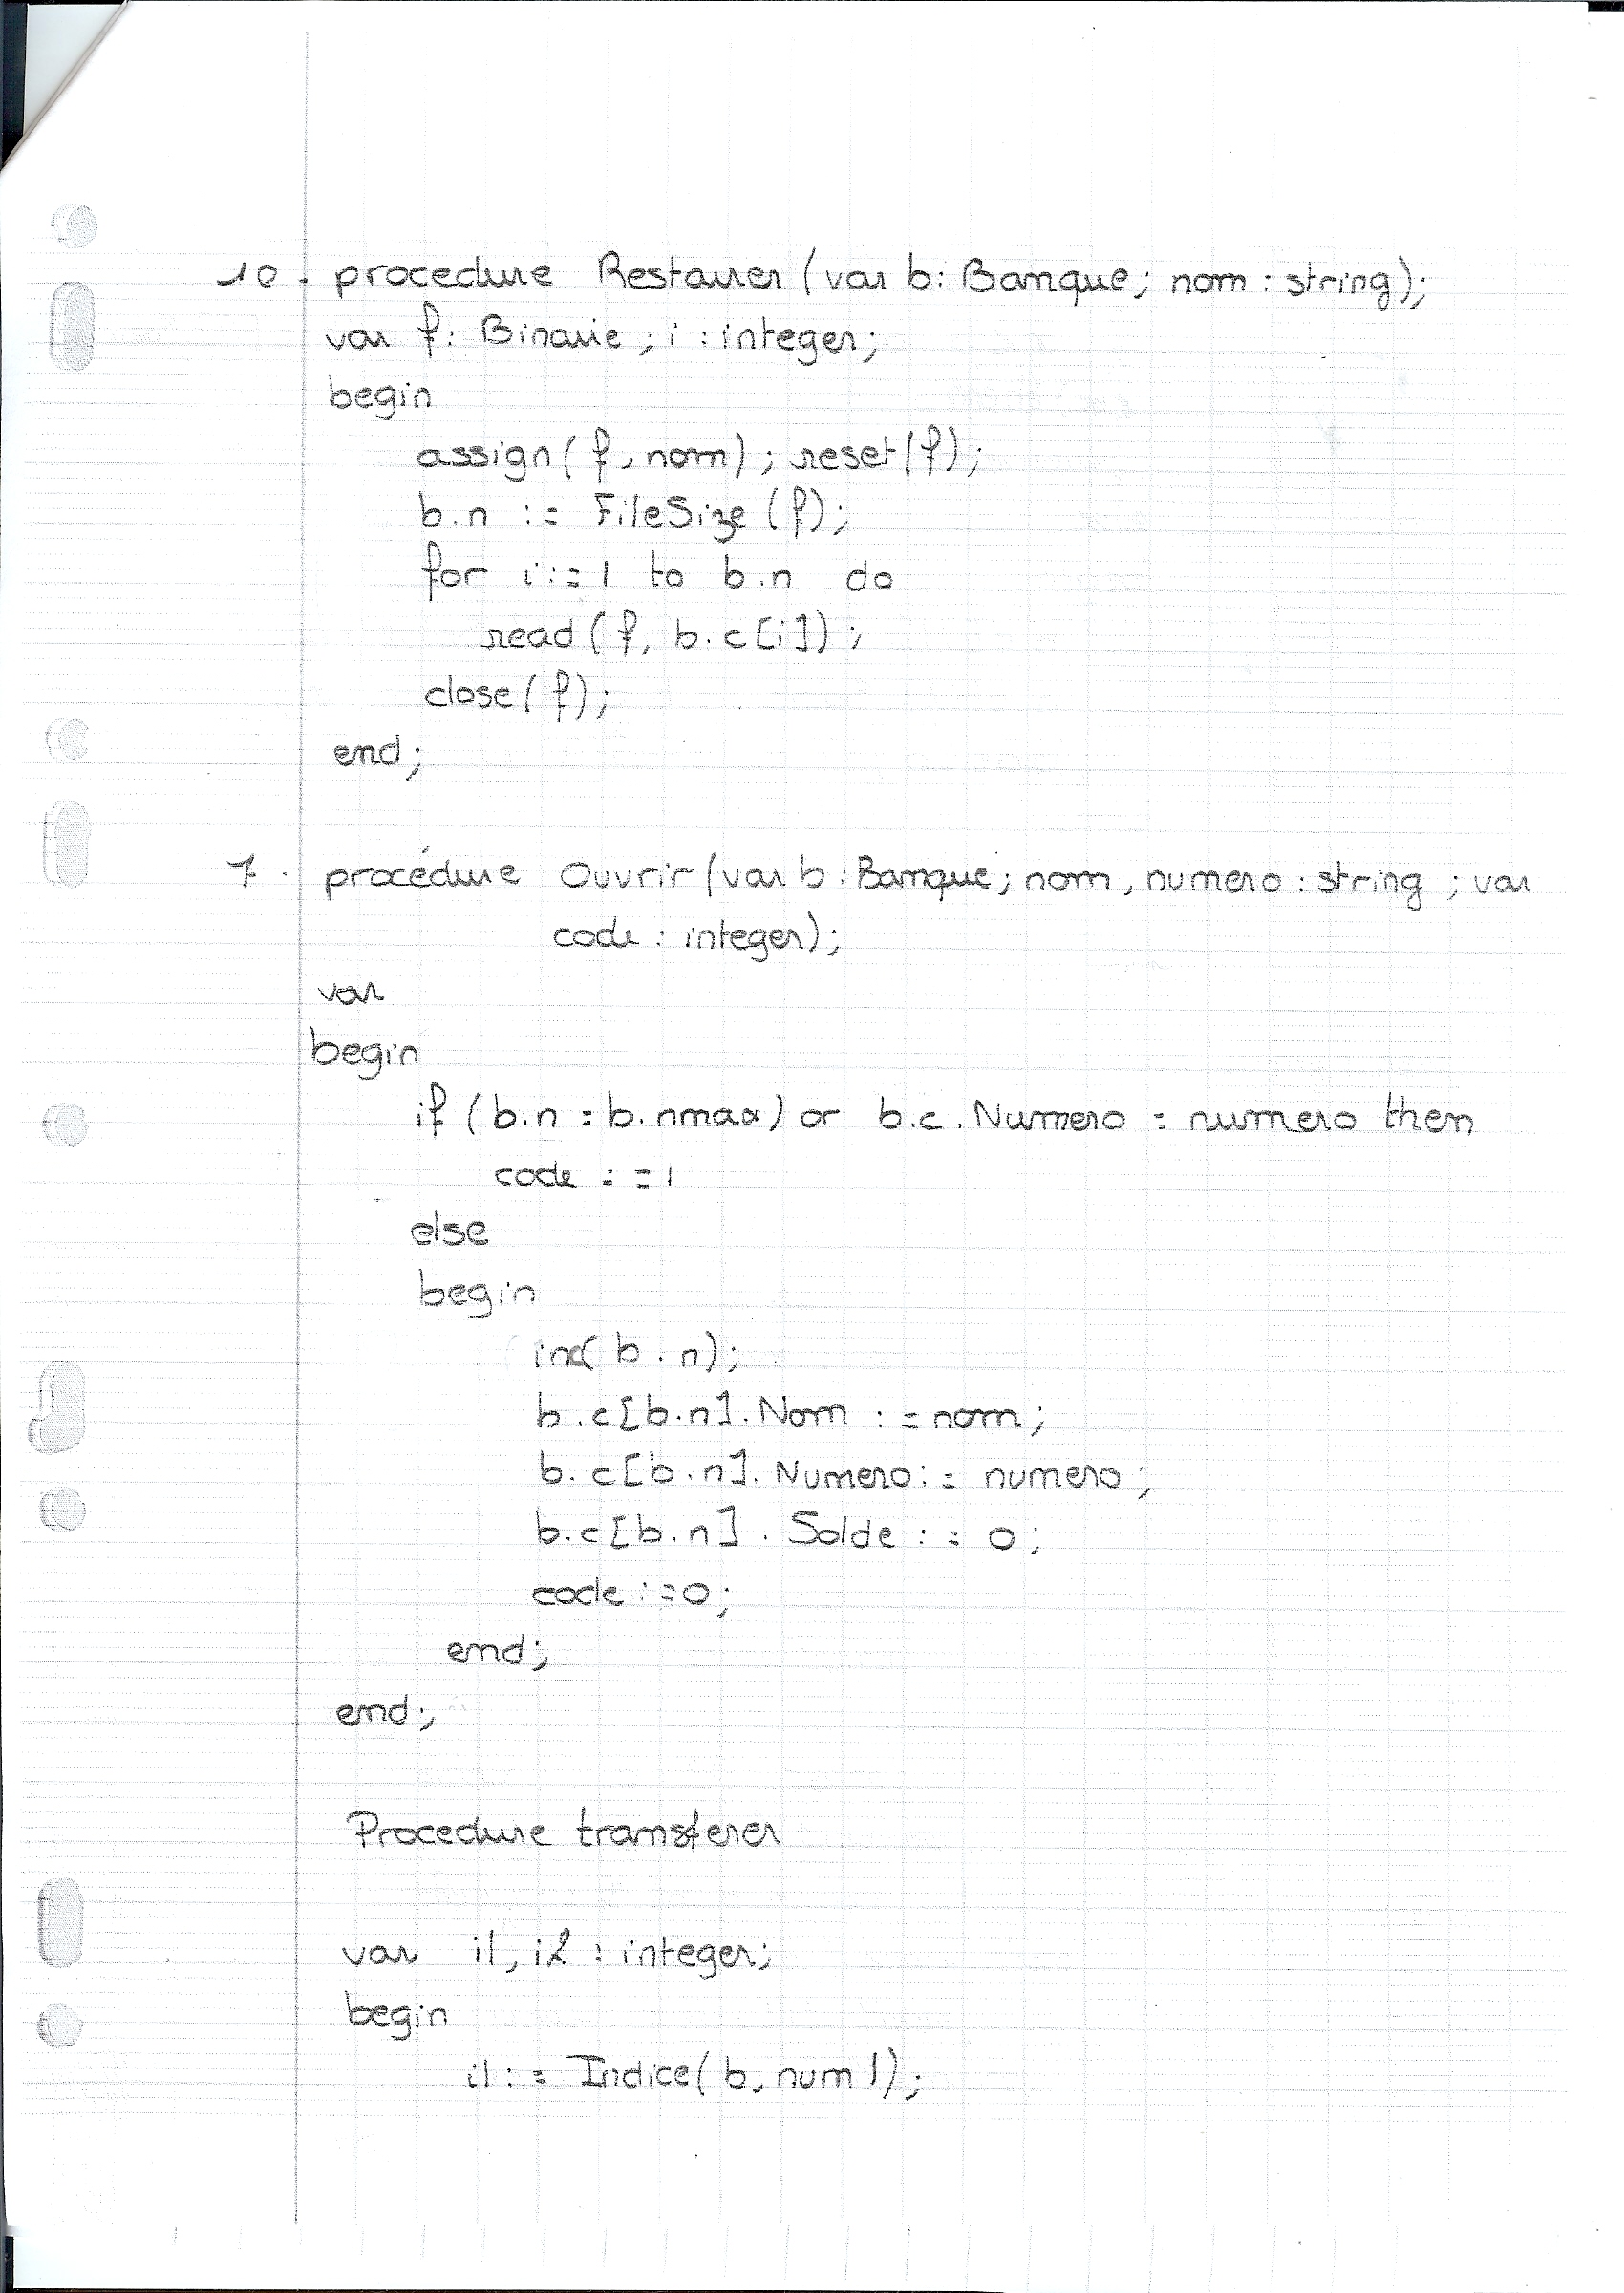 10. procedure Restaurer (var b: Banque; nom: string);
var f: Binaire; i: integer;
begin
assign(f, nom); reset(f);
b.n := FileSize(f);
for i:=1 to b.n do
read(f, b.c[i]);
close(f);
end;
7. procédure Ouvrir(var b: Banque; nom, numero: string; var
code: integer);
var
begin
if (b.n = b.nmax) or b.c.Numero = numero then
code := 1
else
begin
inc(b.n);
b.c[b.n].Nom := nom;
b.c[b.n].Numero := numero;
b.c[b.n].Solde := 0;
code := 0;
end;
end;
Procedure transferer
var i1, i2 : integer;
begin
i1 := Indice(b, num1);